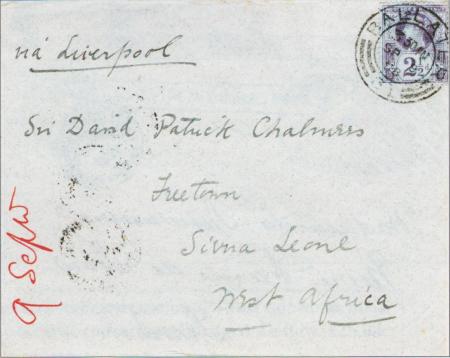 viâ Liverpool
BALLATER
2½
Sir David Patrick Chalmers
Freetown
Sierra Leone
West Africa
9 Sept